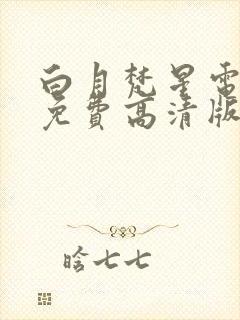 白月梵星電
免費高清版
晗七七